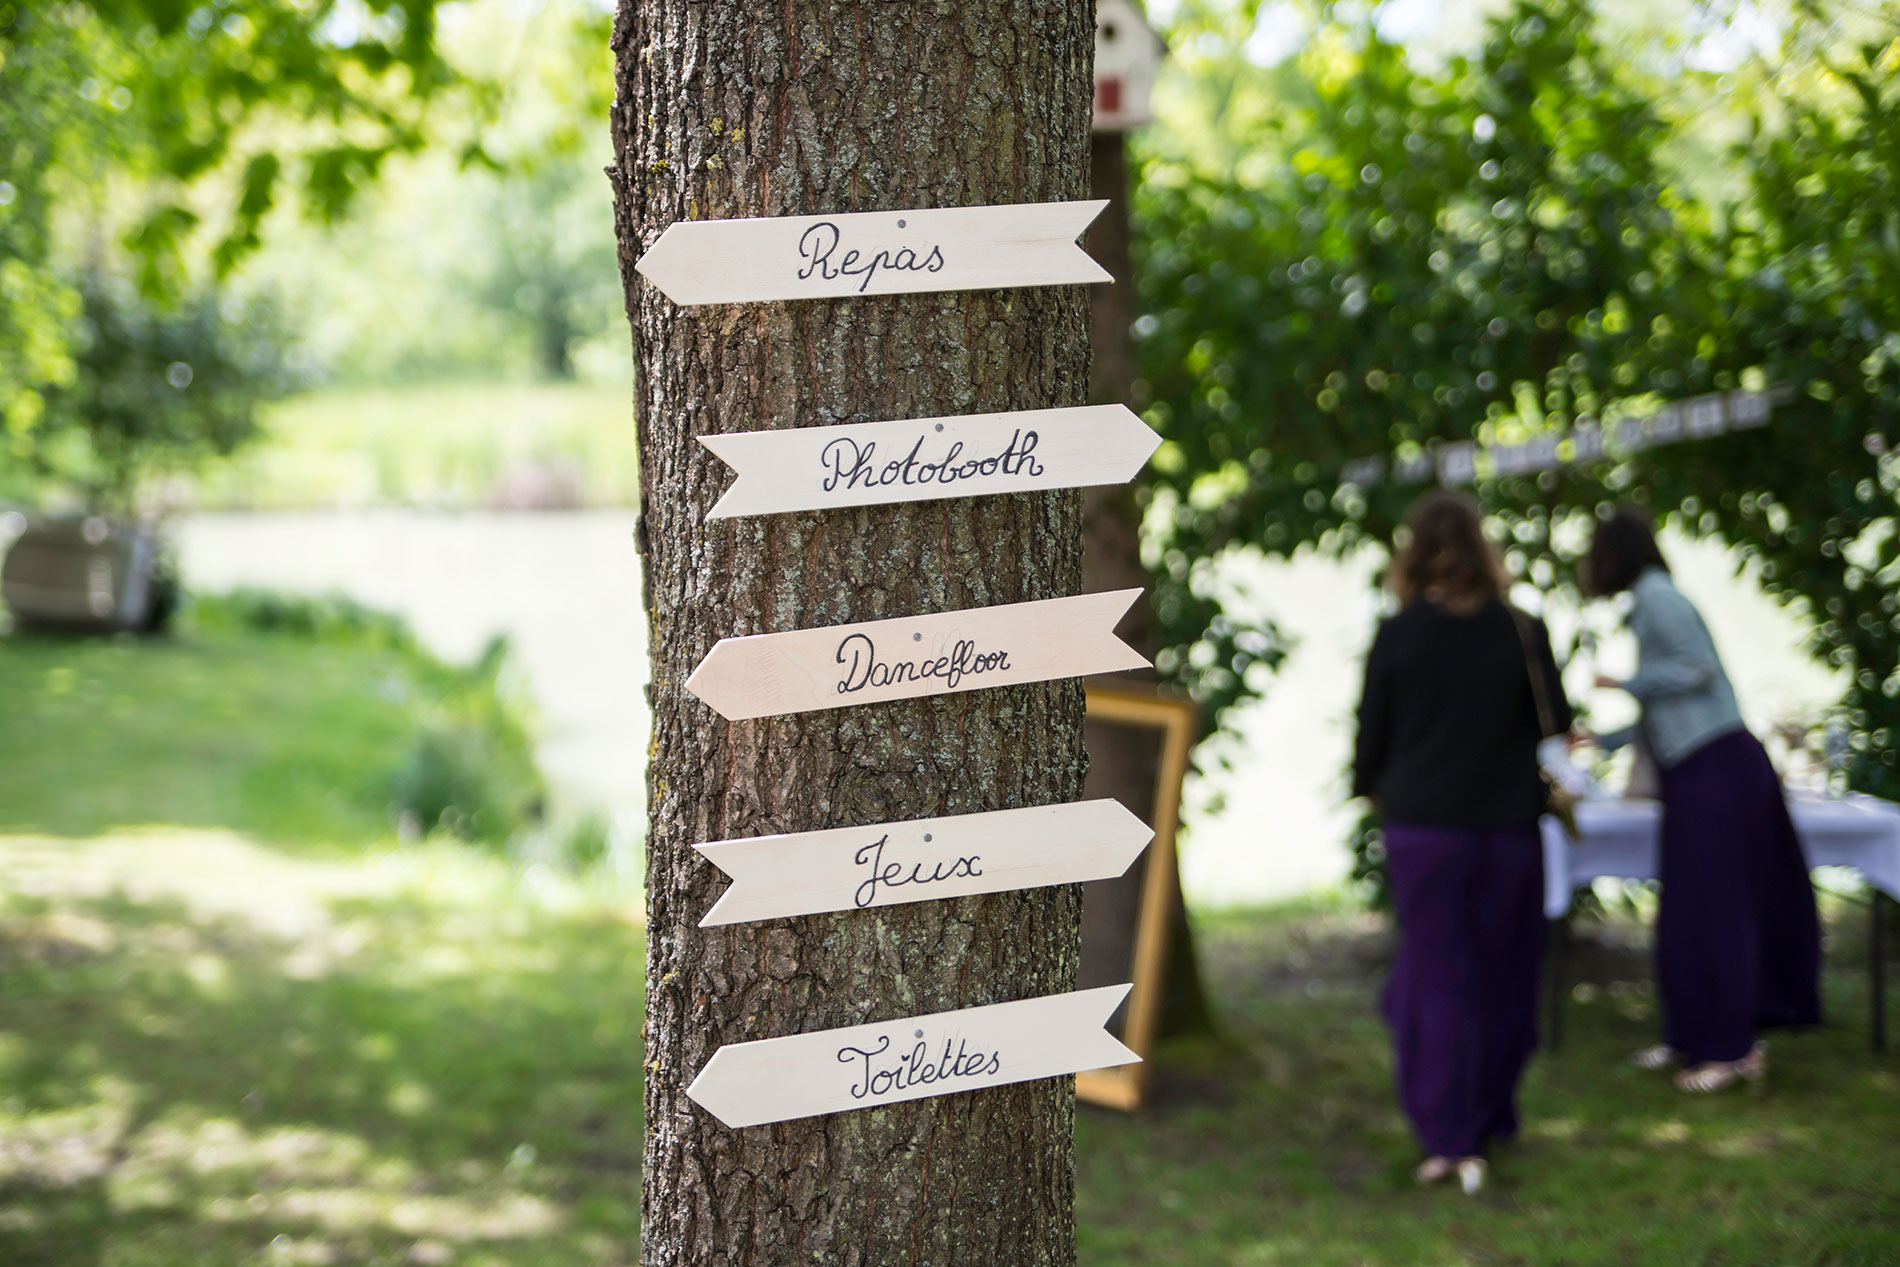 Repas
Photobooth
Dancefloor
Jeux
Toilettes